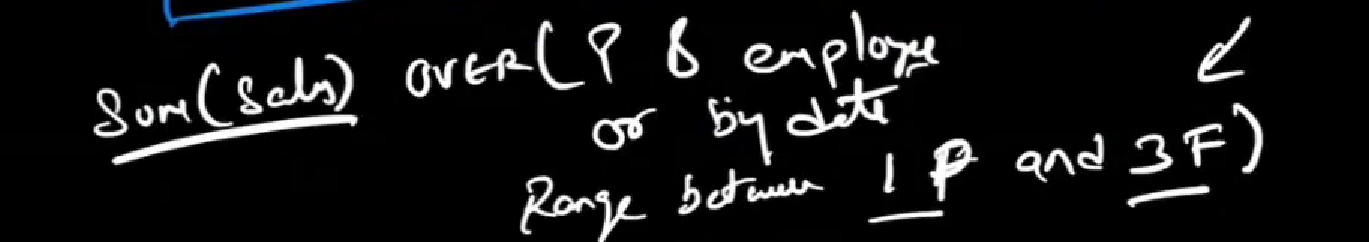 Sum(Sales) OVER(P B employee
or by date
Range between 1 P and 3 F)